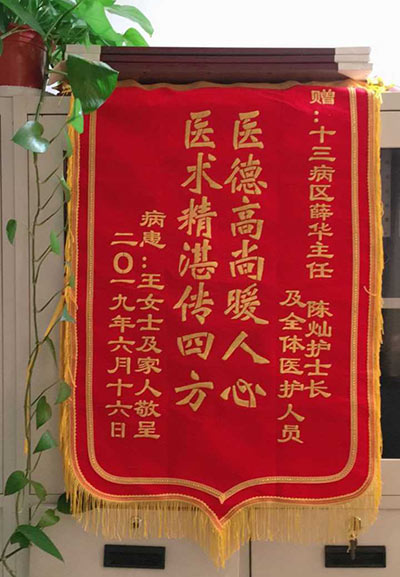 赠：十三病区薛华主任
陈灿护士长
及全体医护人员
医德高尚暖人心
医术精湛传四方
病患：王女士及家人敬呈
二〇一九年六月十六日